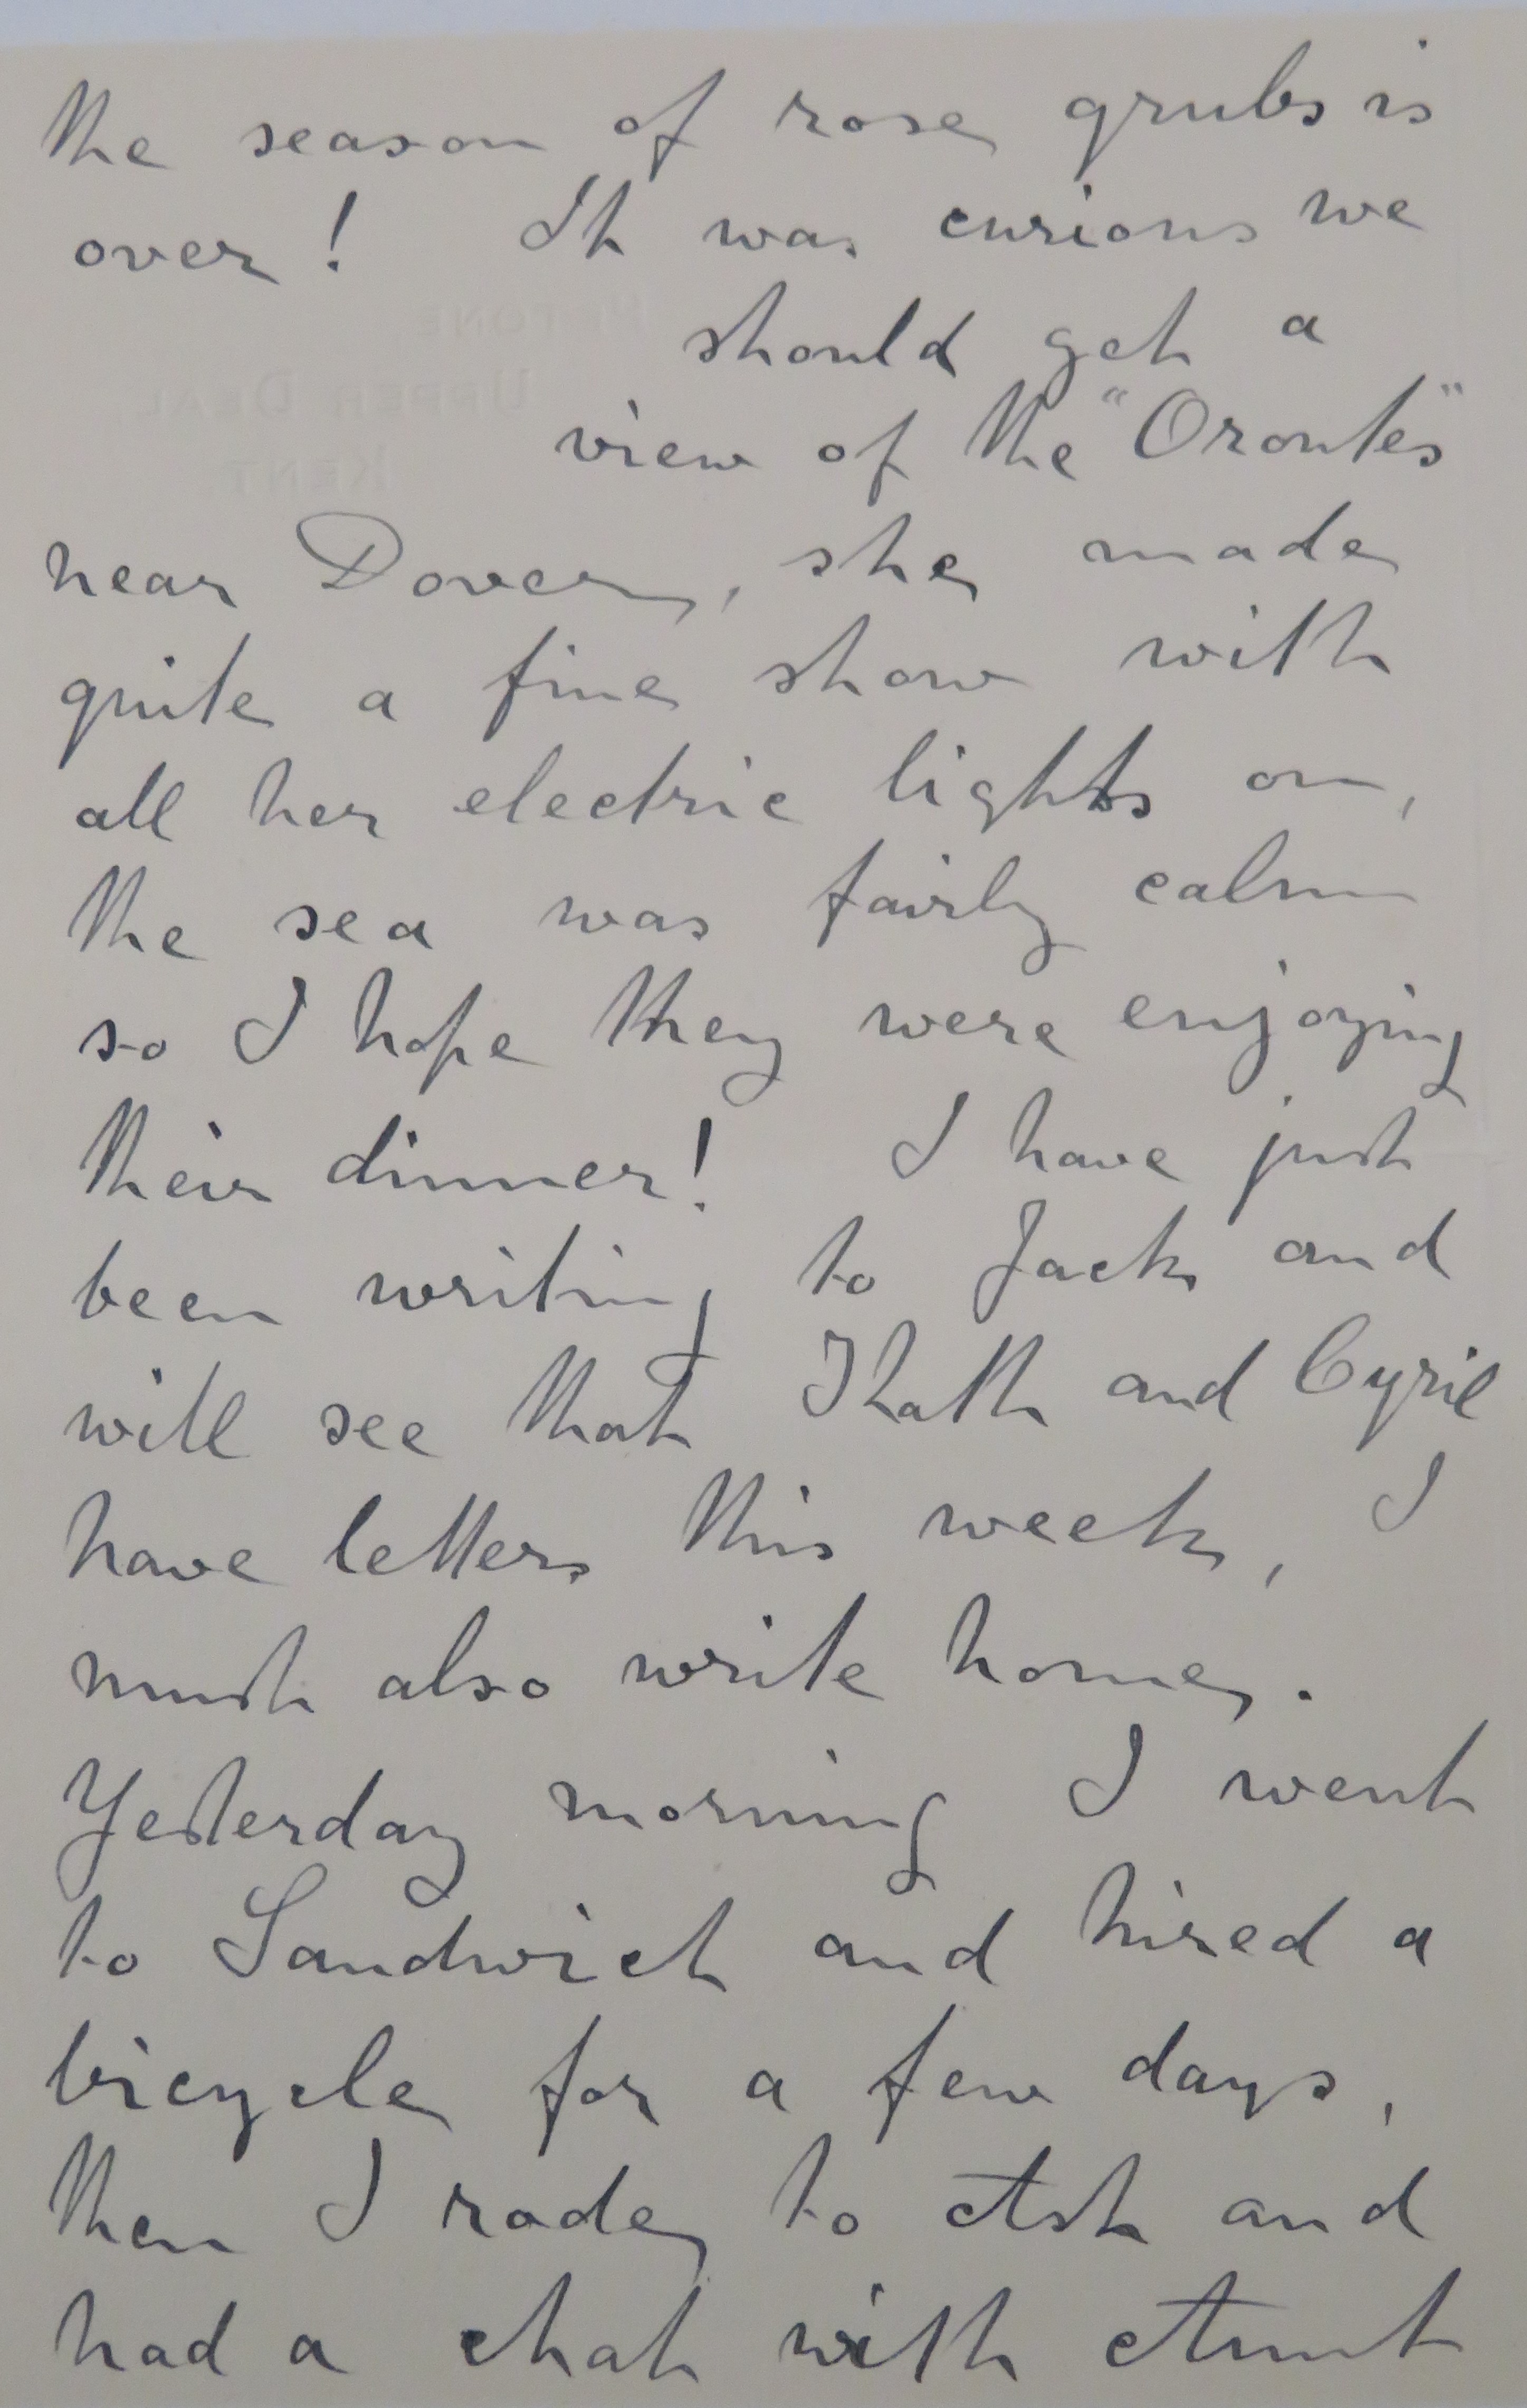 the season of rose grubs is
over! It was curious we
should get a
view of the "Orontes"
near Dover, she made
quite a fine show with
all her electric lights on,
the sea was fairly calm
so I hope they were enjoying
their dinner! I have just
been writing to Jack and
will see that and Cyril
have letters this week, I
must also write home.
Yesterday morning I went
to Sandwich and hired a
bicycle for a few days,
then I rode to Ash and
had a chat with Aunt
UPPER DEAL,
KENT.